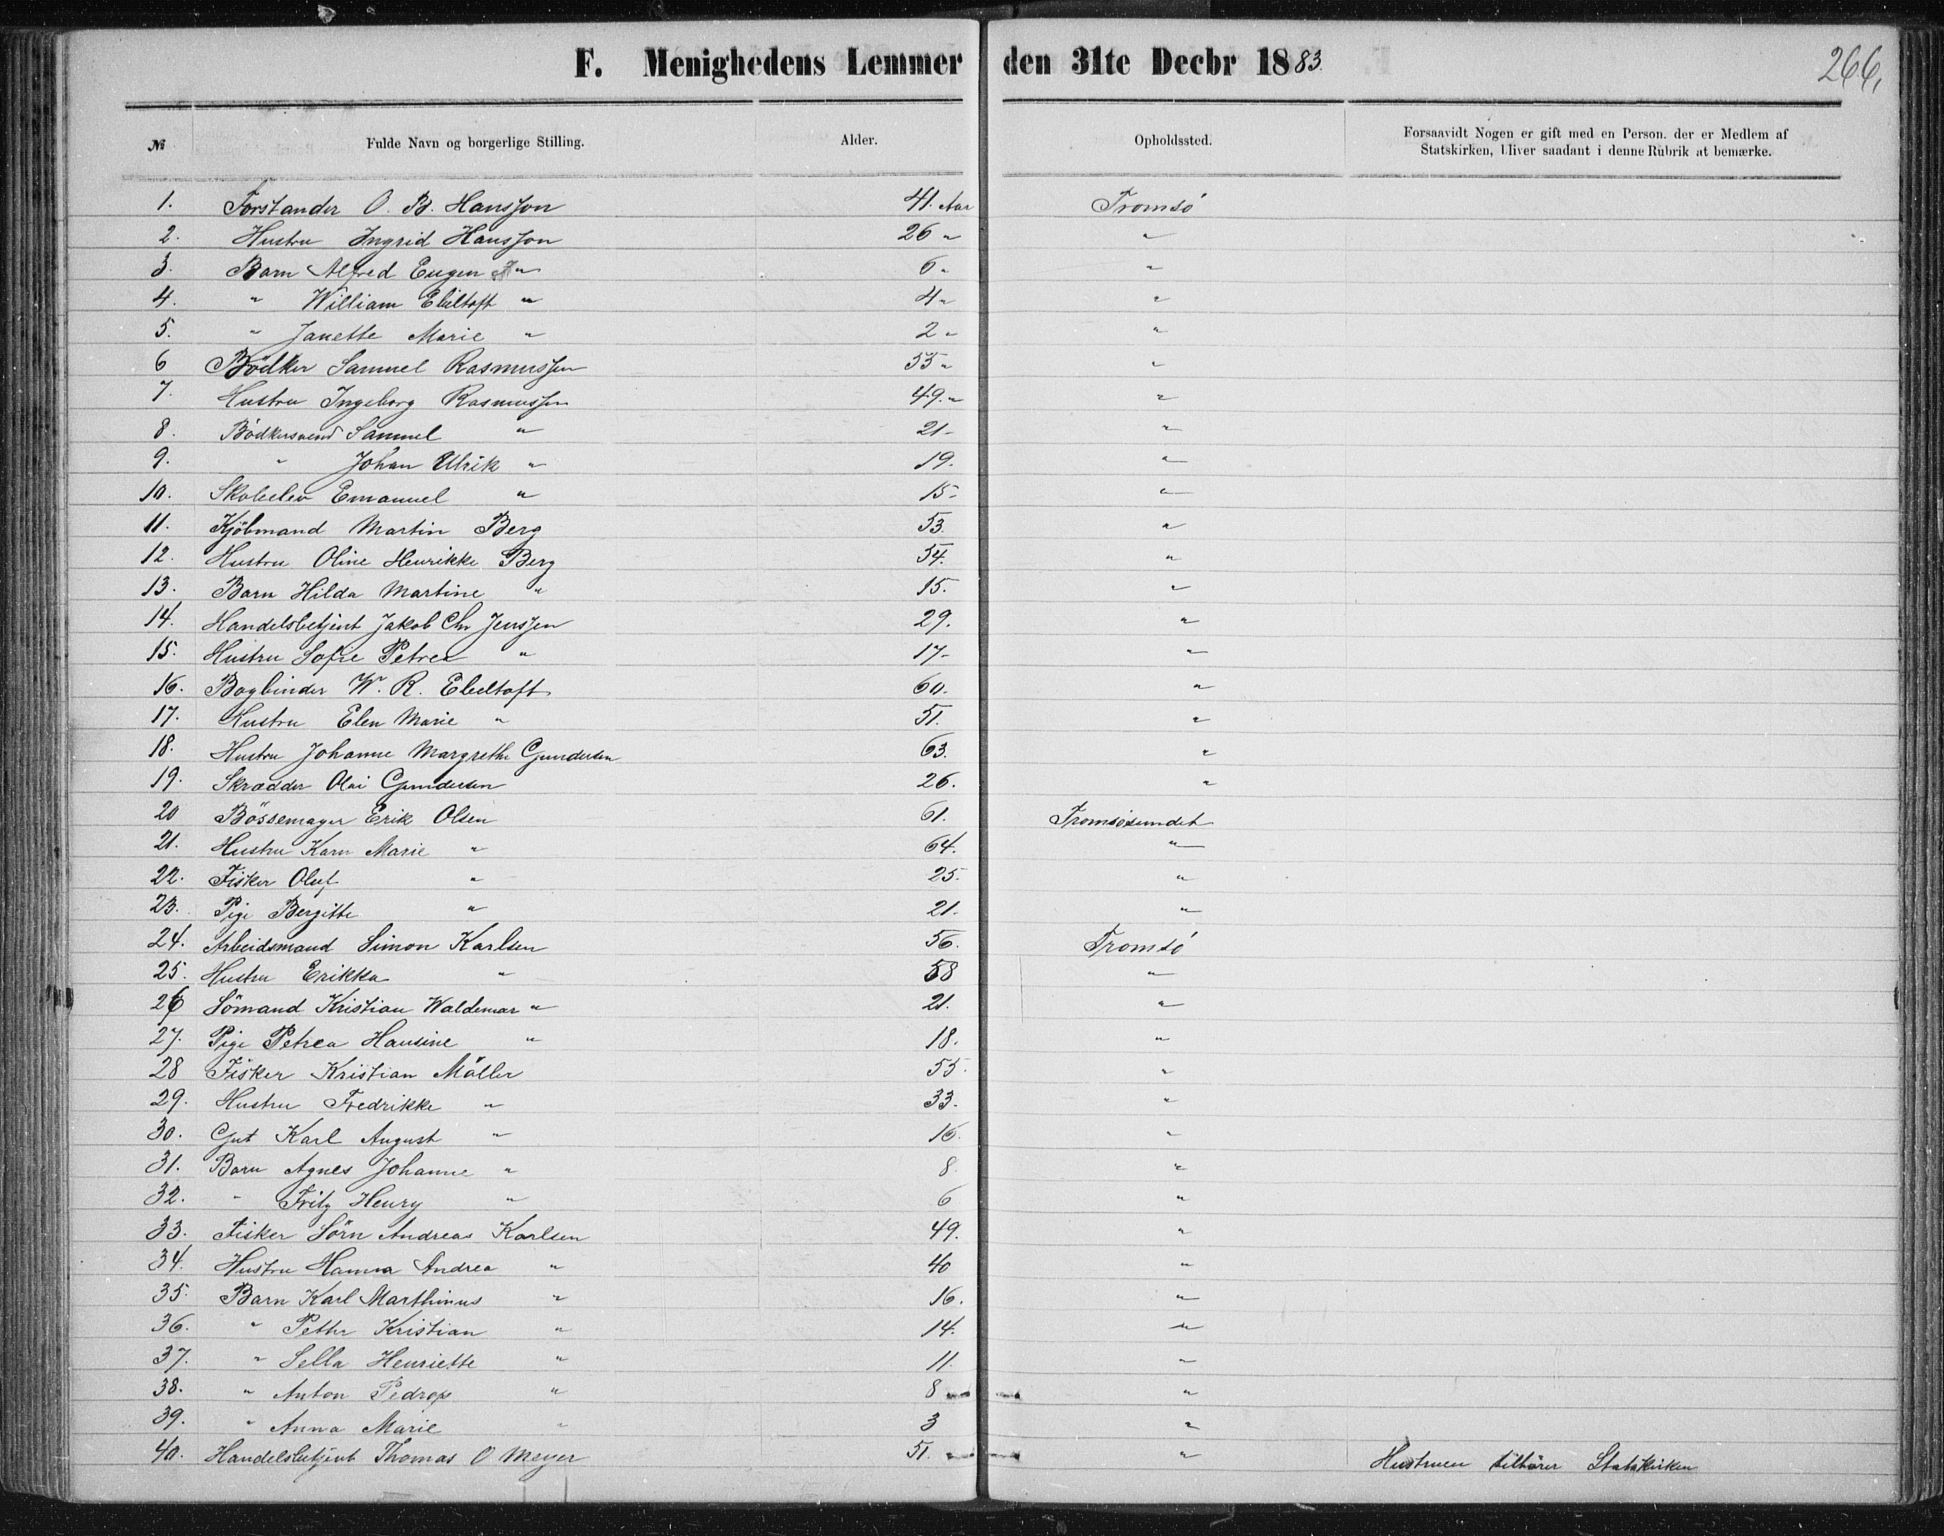 F. Menighedens Lemmer den 31te Decbr 1883.
266,
№ Fulde Navn og borgerlige Stilling. Alder. Opholdssted. Forsaavidt Nogen er gift med en Person, der er Medlem af
Statskirken, bliver saadant i denne Rubrik at bemærke.
1. Forstander O. B. Hansson 41. Aar Tromsö
2. Hustru Ingrid Hansson 26 " "
3. Barn Alfred Eugen " 6 " "
4. " William Ebeltoft " 4 " "
5. " Janette Marie " 2 " "
6 Bödker Samuel Rasmussen 55 " "
7. Hustru Ingeborg Rasmussen 49. " "
8. Bödkersvend Samuel " 21 - "
9. " Johan Ulrik " 19. "
10. Skoleelev Emanuel " 15 - "
11. Kjöbmand Martin Berg 53. "
12. Hustru Oline Henrikke Berg 54. "
13. Barn Hilda Martine " 15. "
14. Handelsbetjent Jakob Chr Jenssen 29. "
15. Hustru Sofie Petrea " 17 - "
16. Bogbinder W. R. Ebeltoft 60. "
17. Hustru Elen Marie " 51. "
18. Hustru Johanne Margrethe Gundersen 63. "
19. Skrædder Olai Gundersen 26. "
20 Bössemager Erik Olsen 61. Tromsösundet
21. Hustru Karn Marie " 64. "
22. Fisker Oluf " 25. "
23. Pige Bergitte " 21. "
24. Arbeidsmand Simon Karlsen 56. Tromsö
25. Hustru Erikka " 58 "
26 Sömand Kristian Waldemar " 21. "
27. Pige Petrea Hansine " 18. "
28 Fisker Kristian Möller 55. "
29. Hustru Fredrikke " 33. "
30. Gut Karl August " 16. "
31. Barn Agnes Johanne " 8. "
32. " Fritz Henry " 6 "
33. Fisker Sörn Andreas Karlsen 49. "
34. Hustru Hanna Andrea " 40 "
35. Barn Karl Marthinus " 16. "
36. " Petter Kristian " 14. "
37. " Sella Henriette " 11. "
38. " Anton " 8 "
39. " Anna Marie " 3 "
40. Handelsbetjent Thomas O Meyer 51. " Hustruen tilhörer Statskirken